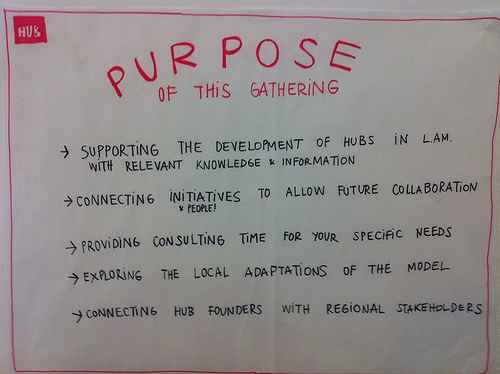 HUB
PURPOSE
OF THIS GATHERING
→ SUPPORTING THE DEVELOPMENT OF HUBS IN L.AM.
WITH RELEVANT KNOWLEDGE & INFORMATION
→ CONNECTING INITIATIVES TO ALLOW FUTURE COLLABORATION
& PEOPLE!
→ PROVIDING CONSULTING TIME FOR YOUR SPECIFIC NEEDS
→ EXPLORING THE LOCAL ADAPTATIONS OF THE MODEL
→ CONNECTING HUB FOUNDERS WITH REGIONAL STAKEHOLDERS